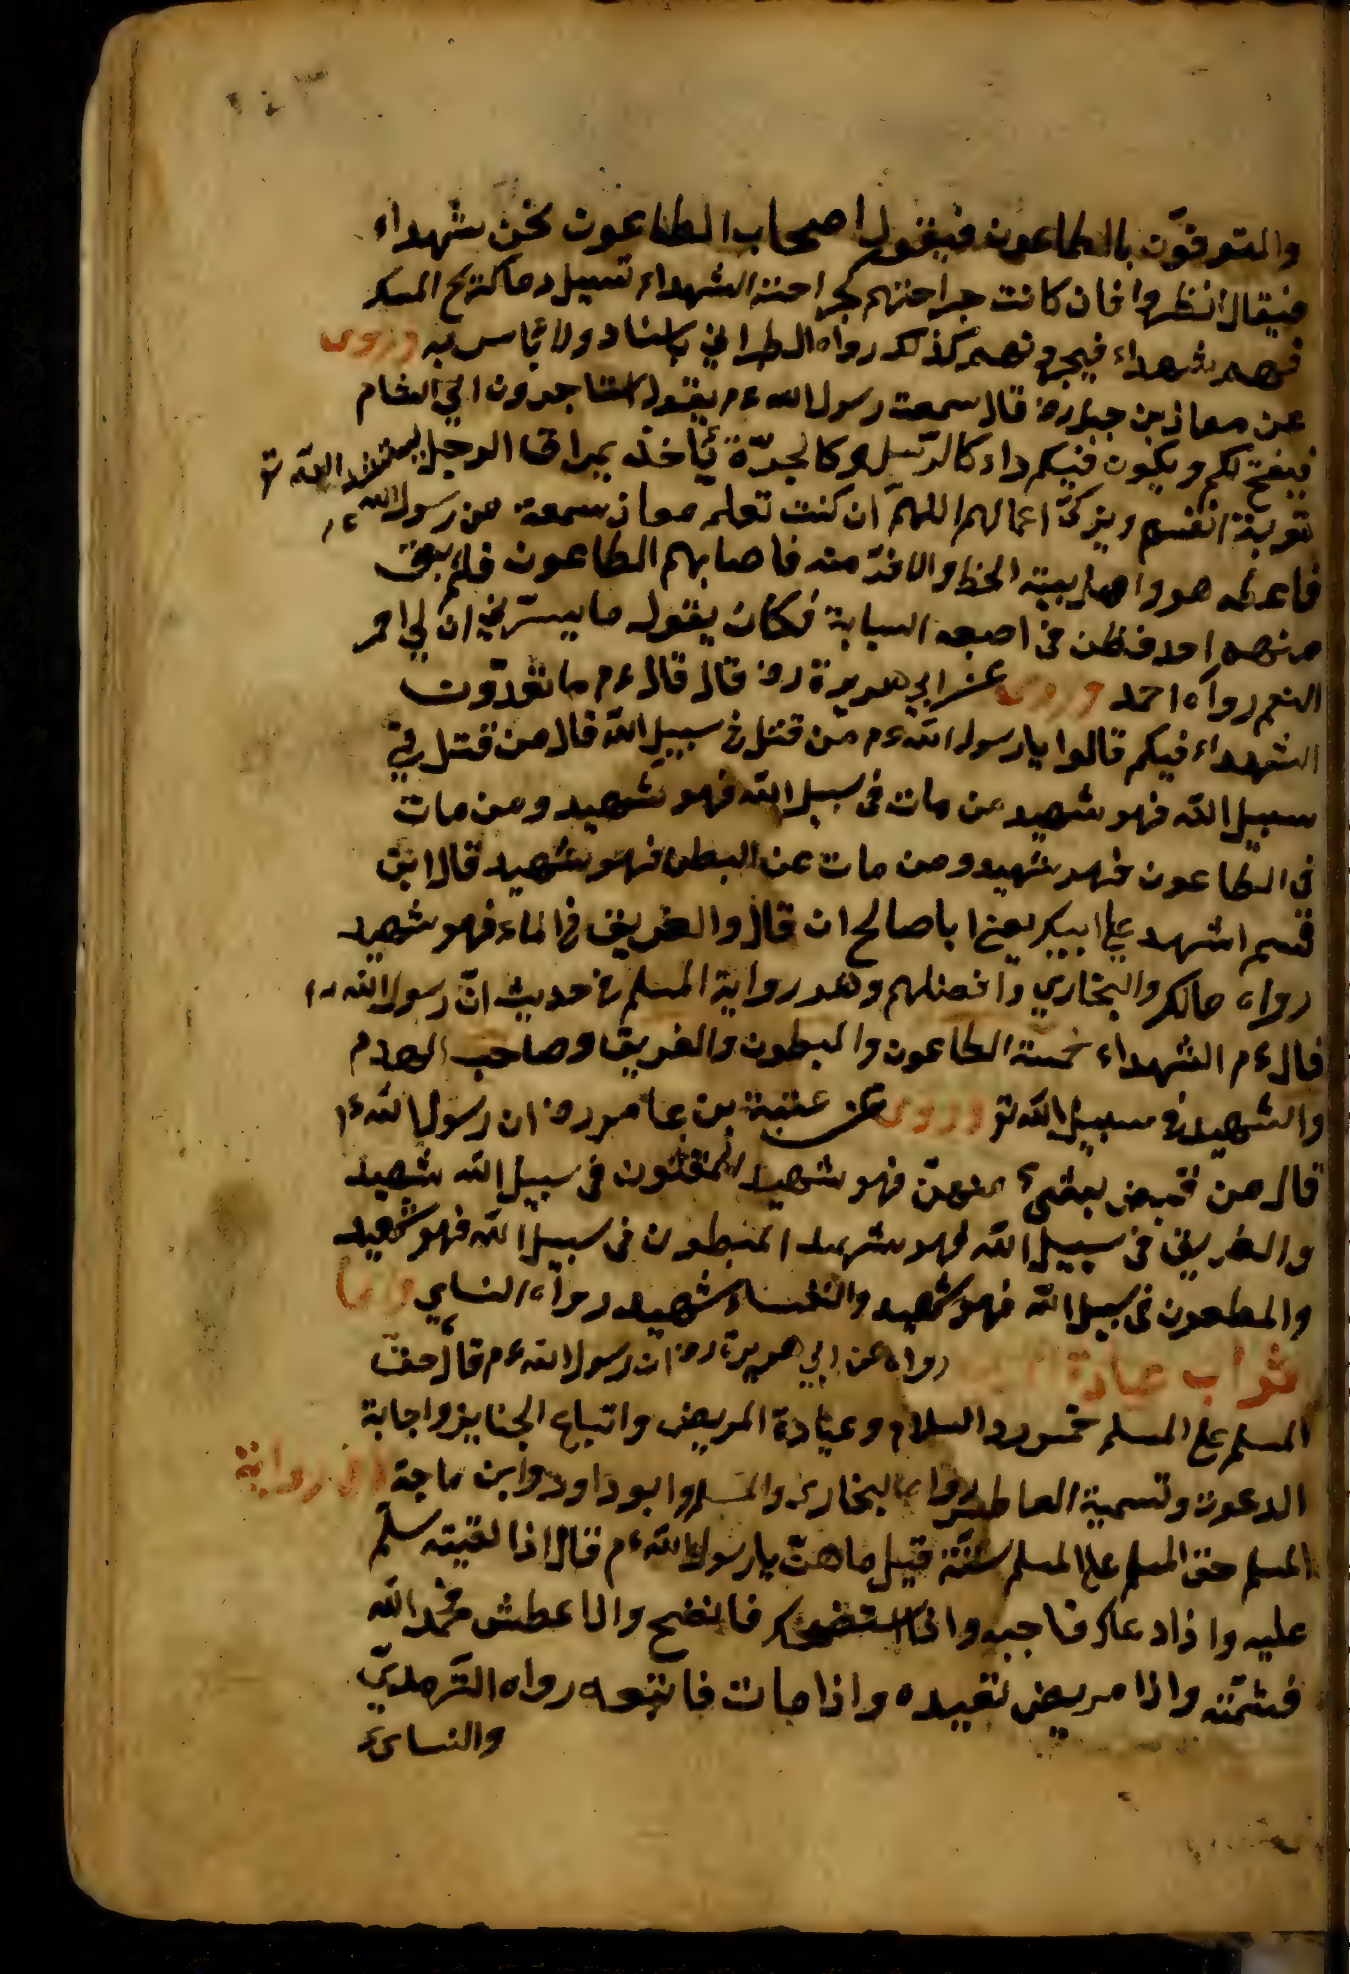 والمتوفون بالطاعون فيقول اصحاب الطاعون نحن شهداء
فيقال انظروا فان كانت جراحتهم كجراحة الشهداء تسيل دما كريح المسك
فهم شهداء فيجدونهم كذلك رواه الطبراني باسناد ولا بأس به وروى
عن معاذ بن جبل رض قال سمعت رسول الله عم يقول ستهاجرون الى الشام
فيفتح لكم ويكون فيكم داء كالدمل او كالجرّة يأخذ بمراق الرجل يستشهد الله تع
به انفسهم ويزكى اعمالهم اللهم ان كنت تعلم معاذ سمعه من رسول الله عم
فاعطه هو واهل بيته الحظ والاوفر منه فاصابهم الطاعون فلم يبق
منهم احد فطعن فى اصبعه السبابة فكان يقول ما يسرّنى ان لى احمر
النعم رواه احمد وروى عن ابى هريرة رض قال قال عم ما تعدّون
الشهداء فيكم قالوا يا رسول الله عم من قتل فى سبيل الله قال من قتل فى
سبيل الله فهو شهيد من مات فى سبيل الله فهو شهيد ومن مات
فى الطاعون فهو شهيد ومن مات من البطن فهو شهيد قال ابن
قسم اشهد على ابيك يعنى ابا صالح ان قال والغريق فى الماء فهو شهيد
رواه مالك والبخارى وافضلهم وهو رواية المسلم فى حديث انّ رسول الله
قال عم الشهداء خمسة الطاعون والمبطون والغريق وصاحب الهدم
والشهيد فى سبيل الله تع وروى عن عقبة بن عامر رض ان رسول الله عم
قال من قبض بشىء منهن فهو شهيد المقتول فى سبيل الله شهيد
والغريق فى سبيل الله فهو شهيد المبطون فى سبيل الله فهو شهيد
والمطعون فى سبيل الله فهو شهيد والنفساء شهيد رواه النساى واما
ثواب عيادة رواه عن ابى هريرة رض ان رسول الله عم قال حق
المسلم على المسلم خمس رد السلام وعيادة المريض واتباع الجنايز واجابة
الدعوت وتسمية العاطس رواه البخارى والمسلم وابو داود وابن ماجة وفى رواية
المسلم حق المسلم على المسلم ستّة قيل ما هنّ يا رسول الله عم قال اذا لقيته سلّم
عليه واذا دعاك فاجبه واذا استنصحك فانصح واذا عطش فحمد الله
فشمّته واذا مريض تعيده واذا مات فاتبعه رواه الترمذىّ
والنساىء